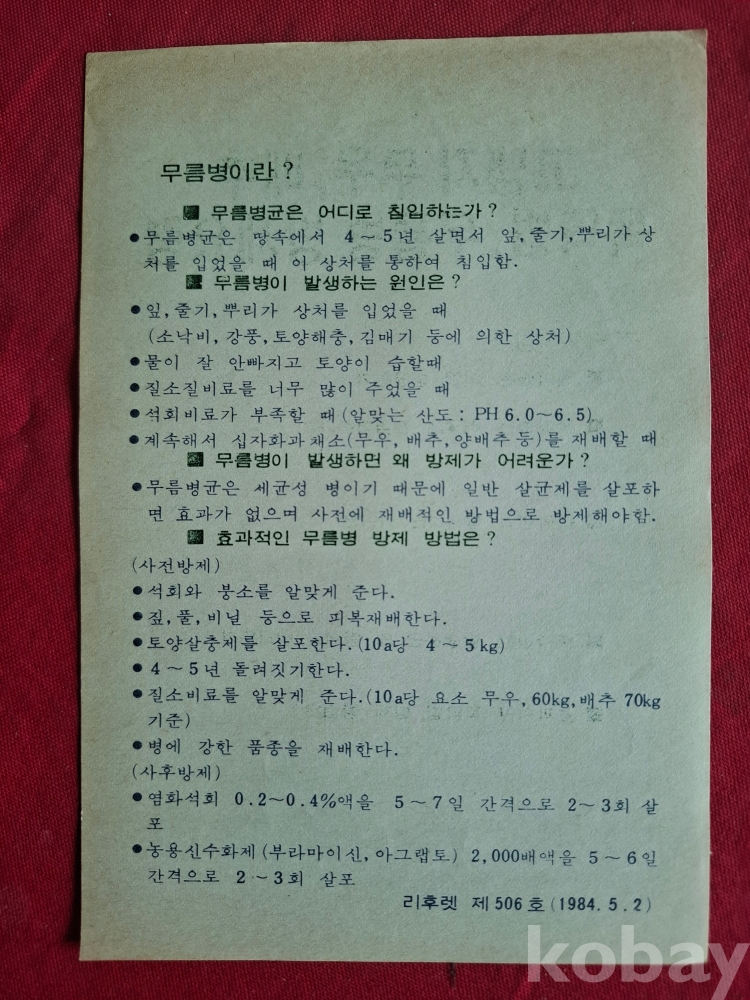 무름병이란?
■ 무름병균은 어디로 침입하는가?
●무름병균은 땅속에서 4~5년 살면서 잎,줄기,뿌리가 상
처를 입었을 때 이 상처를 통하여 침입함.
■ 무름병이 발생하는 원인은?
●잎,줄기,뿌리가 상처를 입었을 때
(소낙비,강풍,토양해충,김매기 등에 의한 상처)
●물이 잘 안빠지고 토양이 습할때
●질소질비료를 너무 많이 주었을 때
●석회비료가 부족할 때(알맞는 산도: PH 6.0~6.5)
●계속해서 십자화과채소(무우, 배추, 양배추 등)를 재배할 때
■ 무름병이 발생하면 왜 방제가 어려운가?
●무름병균은 세균성 병이기 때문에 일반 살균제를 살포하
면 효과가 없으며 사전에 재배적인 방법으로 방제해야함.
■ 효과적인 무름병 방제 방법은?
(사전방제)
●석회와 붕소를 알맞게 준다.
●짚,풀,비닐 등으로 피복재배한다.
●토양살충제를 살포한다.(10a당 4~5kg)
●4~5년 돌려짓기한다.
●질소비료를 알맞게 준다.(10a당 요소 무우, 60kg, 배추 70kg
기준)
●병에 강한 품종을 재배한다.
(사후방제)
●염화석회 0.2~0.4%액을 5~7일 간격으로 2~3회 살
포
●농용신수화제(부라마이신,아그랩토) 2,000배액을 5~6일
간격으로 2~3회 살포
리후렛 제506호(1984. 5. 2)
kobay